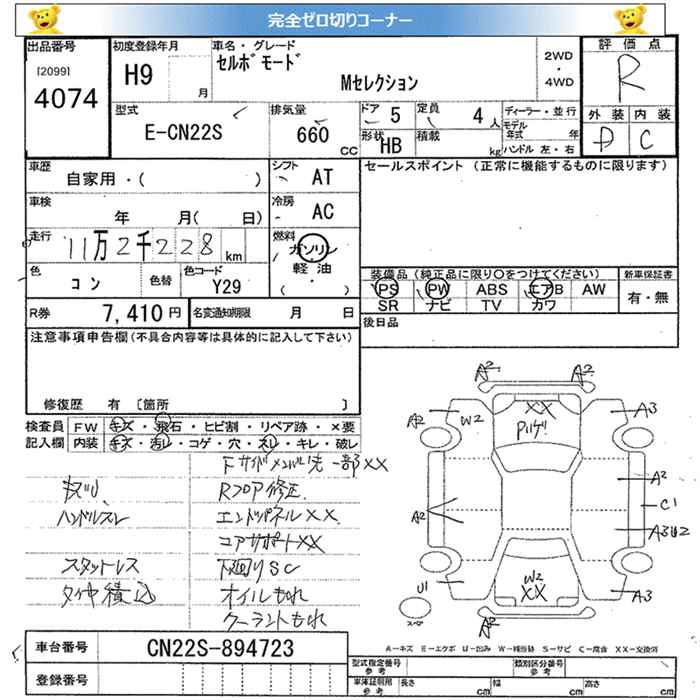 完全ゼロ切りコーナー
出品番号
[2099]
4074
初度登録年月
H9
月
車名・グレード
セルボモード
Mセレクション
2WD
・
4WD
評価点
R
外装 内装
D C
型式
E-CN22S
排気量
660
CC
ドア 5
定員 4 人
形状 HB
積載 kg
ディーラー・並行
モデル年式 年
ハンドル 左・右
車歴
自家用・( )
シフト
AT
セールスポイント (正常に機能するものに限ります)
車検
年 月( 日)
冷房
AC
走行
11万2千228 km
燃料
ガソリン
軽油
( ・ )
色
コン
色替
色コード
Y29
装備品 (純正品に限り〇をつけてください)
新車保証書
PS PW ABS エアB AW
有・無
SR ナビ TV カワ
R券
7,410円
名変通知期限 月 日
後日品
注意事項申告欄(不具合内容等は具体的に記入して下さい)
修復歴 有 〔箇所 〕
検査員
記入欄
FW キズ・飛石・ヒビ割・リペア跡・×要
内装 キズ・汚レ・コゲ・穴・スレ・キレ・破レ
Fサイドメンバ先一部XX
キズ小
Rフロア修正
ハンドルスレ
エンドパネルXX
コアサポートXX
スタットレス
下廻りSC
タイヤ積込
オイルもれ
クーラントもれ
A2
A2
A2
W2
XX
A3
Pハゲ
A2
A2
C1
A3U2
U1
W2
XX
A3
A2
スペア
A-キズ E-エクボ U-凹み W-補修跡 S-サビ C-腐食 XX-交換済
車台番号
CN22S-894723
登録番号
型式指定番号
参考
類別区分番号
参考
車庫証明用
参考
長さ cm
幅 cm
高さ cm